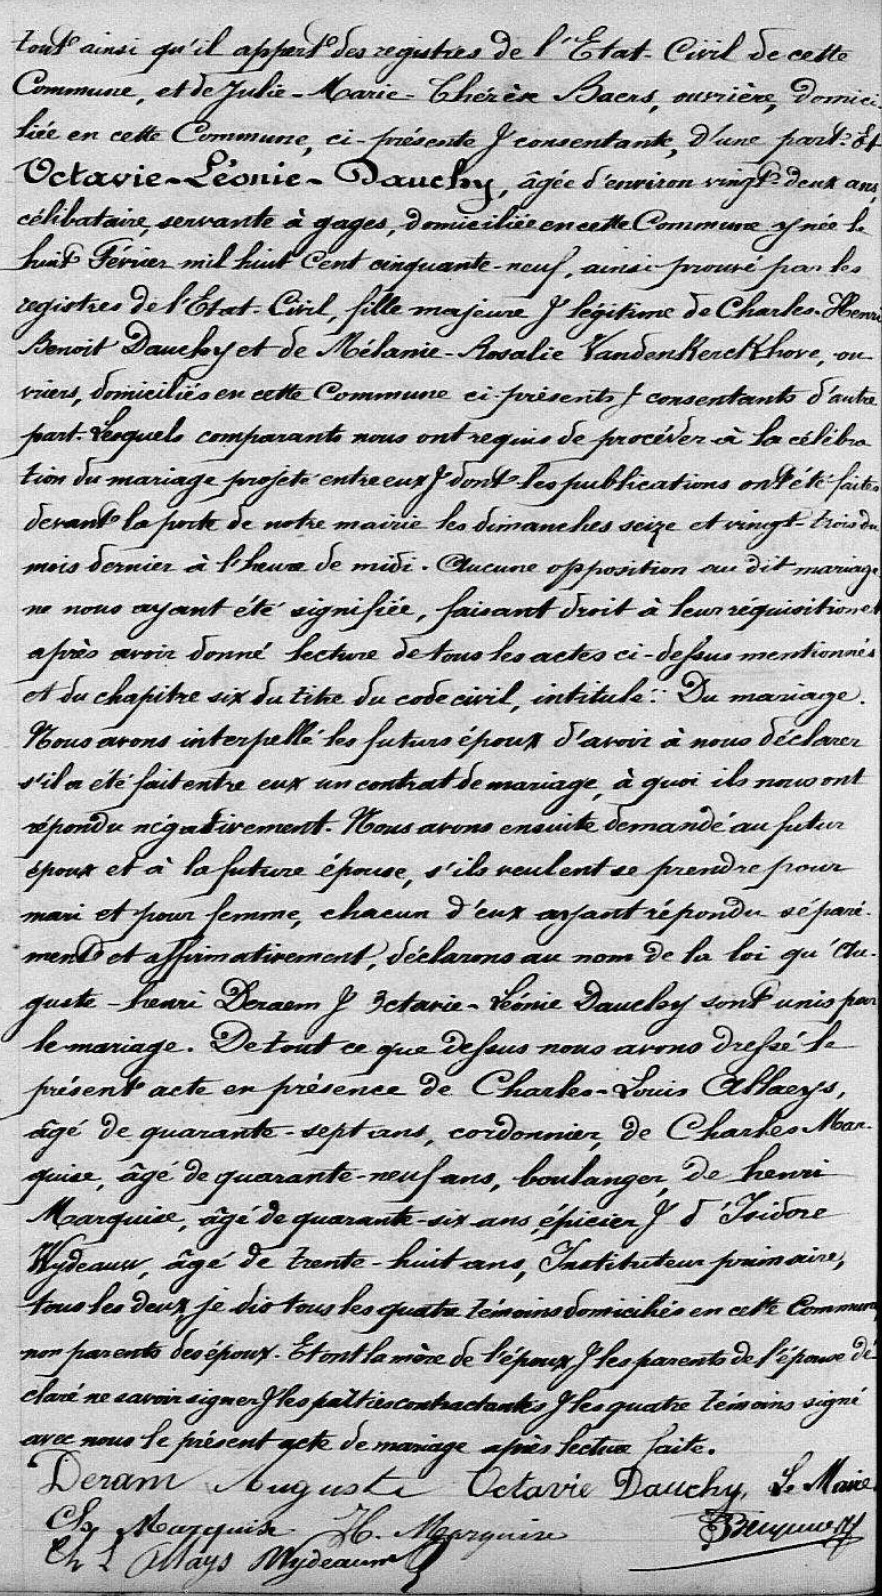 tout ainsi qu'il appert des registres de l'Etat-Civil de cette
Commune, et de Julie-Marie-Thérèse Baers, ouvrière, domici
liée en cette Commune, ci-présente & consentante, d'une part. Et
Octavie-Léonie-Dauchy, âgée d'environ vingt-deux ans,
célibataire, servante à gages, domiciliée en cette Commune y née le
huit Février mil huit Cent cinquante-neuf, ainsi prouvé par les
registres de l'Etat-Civil, fille majeure & légitime de Charles-Henri
Benoit Dauchy et de Mélanie-Rosalie VandenKercKhove, ou
vriers, domiciliés en cette Commune ci-présents & consentants d'autre
part. Lesquels comparants nous ont requis de procéder à la célébra
tion du mariage projeté entre eux & dont les publications ont été faites
devant la porte de notre mairie les dimanches seize et vingt-trois du
mois dernier à l'heure de midi. Aucune opposition au dit mariage
ne nous ayant été signifiée, faisant droit à leur réquisition et
après avoir donné lecture de tous les actes ci-dessus mentionnés
et du chapitre six du titre du code civil, intitulé: Du mariage.
Nous avons interpellé les futurs époux d'avoir à nous déclarer
s'il a été fait entre eux un contrat de mariage, à quoi ils nous ont
répondu négativement. Nous avons ensuite demandé au futur
époux et à la future épouse, s'ils veulent se prendre pour
mari et pour femme, chacun d'eux ayant répondu séparé-
ment et affirmativement, déclarons au nom de la loi qu'Au-
guste-henri Deraem & Octavie-Léonie Dauchy sont unis par
le mariage. De tout ce que dessus nous avons dressé le
présent acte en présence de Charles-Louis Allaeys,
âgé de quarante-sept ans, cordonnier, de Charles Mar-
quise, âgé de quarante-neuf ans, boulanger, de henri
Marquise, âgé de quarante-six ans, épicier & d'Isidore
Wydeauw, âgé de trente-huit ans, Instituteur primaire,
tous les deux, je dis tous les quatre témoins domiciliés en cette Commune,
non parents des époux. Et ont la mère de l'époux & les parents de l'épouse dé-
claré ne savoir signer & les parties contractantes & les quatre témoins signé
avec nous le présent acte de mariage après lecture faite.
Deram Auguste Octavie Dauchy, Le Maire
Ch. Marquise H. Marquise
Ch L Allays Wydeauw